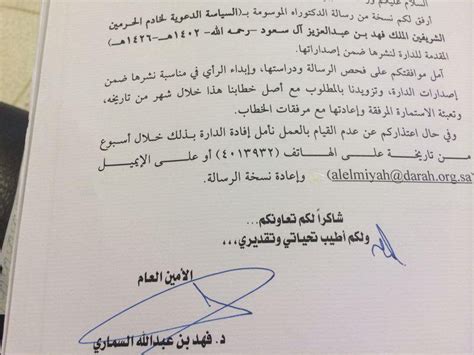 السلام عليكم ور
أرفق لكم نسخة من رسالة الدكتوراه الموسومة بـ(السياسة الدعوية لخادم الحرمين
الشريفين الملك فهد بن عبدالعزيز آل سعود -رحمه الله- ١٤٠٢هـ-١٤٢٦هـ)
المقدمة للدارة لنشرها ضمن إصداراتها.
آمل موافقتكم على فحص الرسالة ودراستها، وإبداء الرأي في مناسبة نشرها ضمن
إصدارات الدارة، وتزويدنا بالمطلوب مع أصل خطابنا هذا خلال شهر من تاريخه،
وتعبئة الاستمارة المرفقة وإعادتها مع مرفقات الخطاب.
وفي حال اعتذاركم عن عدم القيام بالعمل نأمل إفادة الدارة بذلك خلال أسبوع
من تاريخة على الهاتف (٤٠١٣٩٣٢) أو على الإيميل
(alelmiyah@darah.org.sa) وإعادة نسخة الرسالة.
شاكراً لكم تعاونكم...
ولكم أطيب تحياتي وتقديري،،،
الأمين العام
د. فهد بن عبدالله السماري